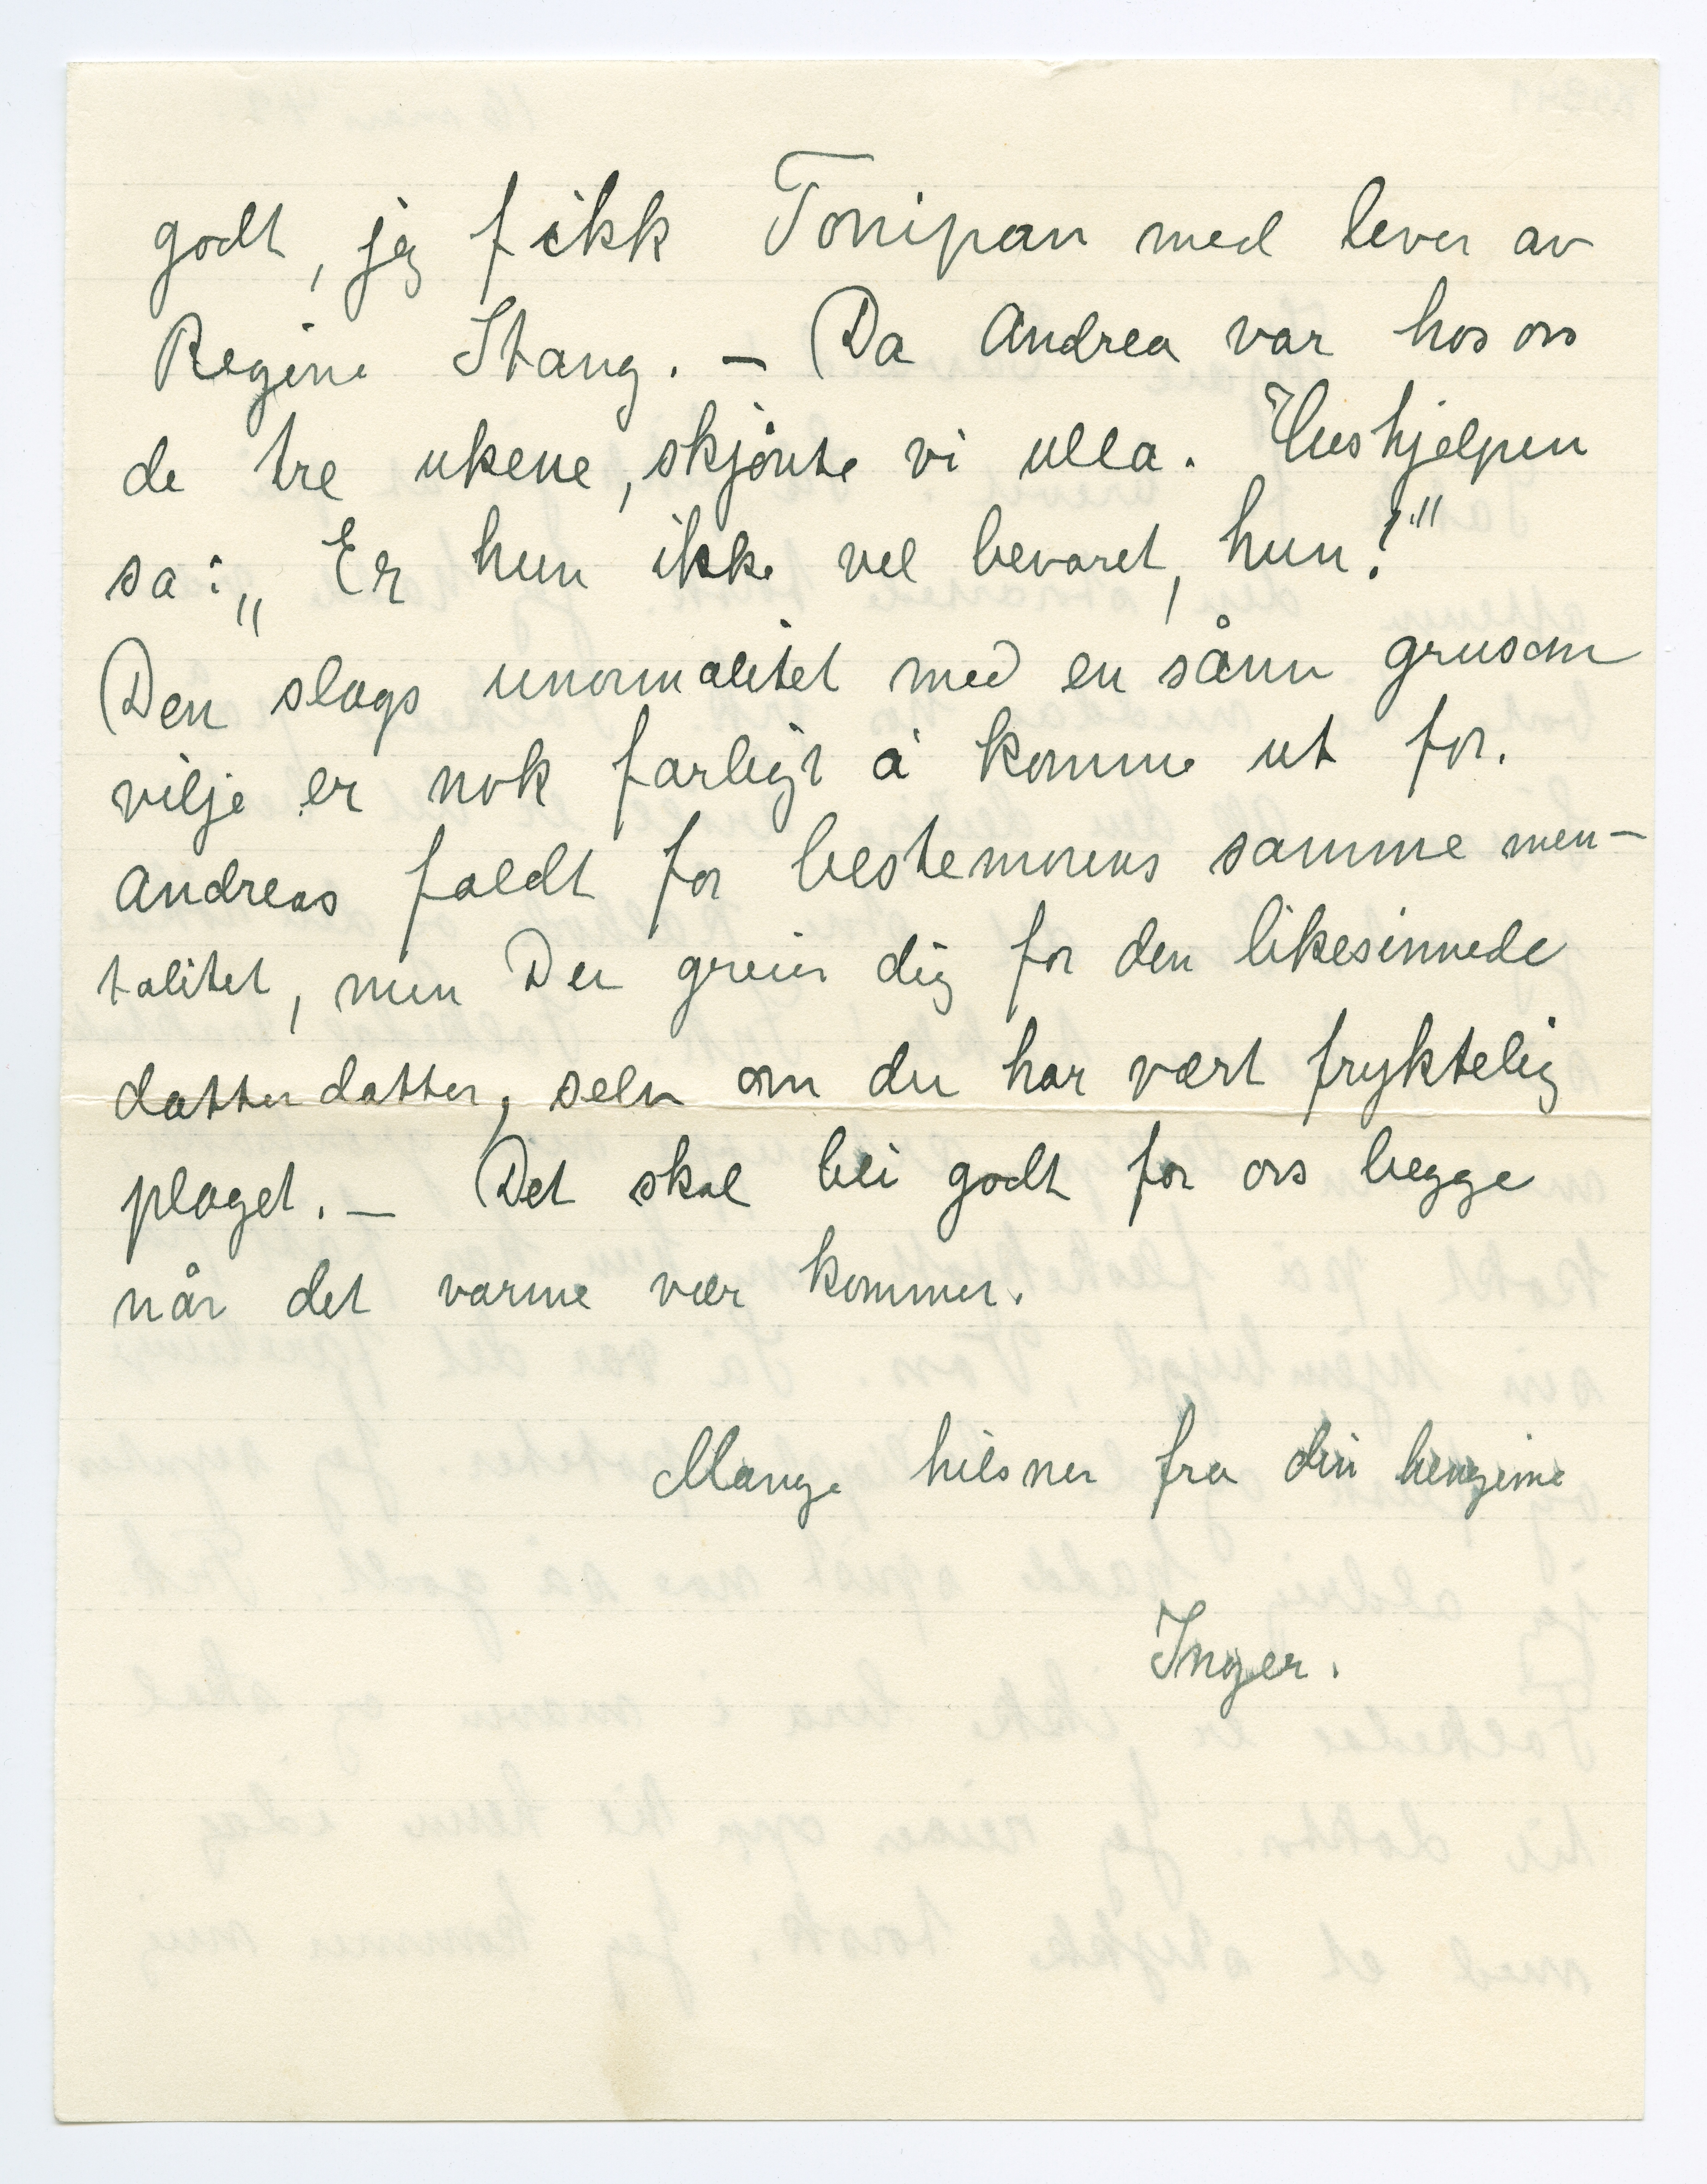 godt, jeg fikk Tonipan med lever av
Regine Stang. – Da Andrea var hos oss
de tre ukene, skjønte vi ulla. Hushjelpen
sa: „Er hun ikke vel bevaret, hun?"
Den slags unormalitet med en sånn grusom
vilje er nok farligt å komme ut for.
Andreas faldt for bestemorens samme men-
talitet, men Du greier dig for den likesinnede
datterdatter, selv om du har vært fryktelig
plaget. – Det skal bli godt for oss begge
når det varme vær kommer.
Mange hilsner fra din hengivne
Inger.